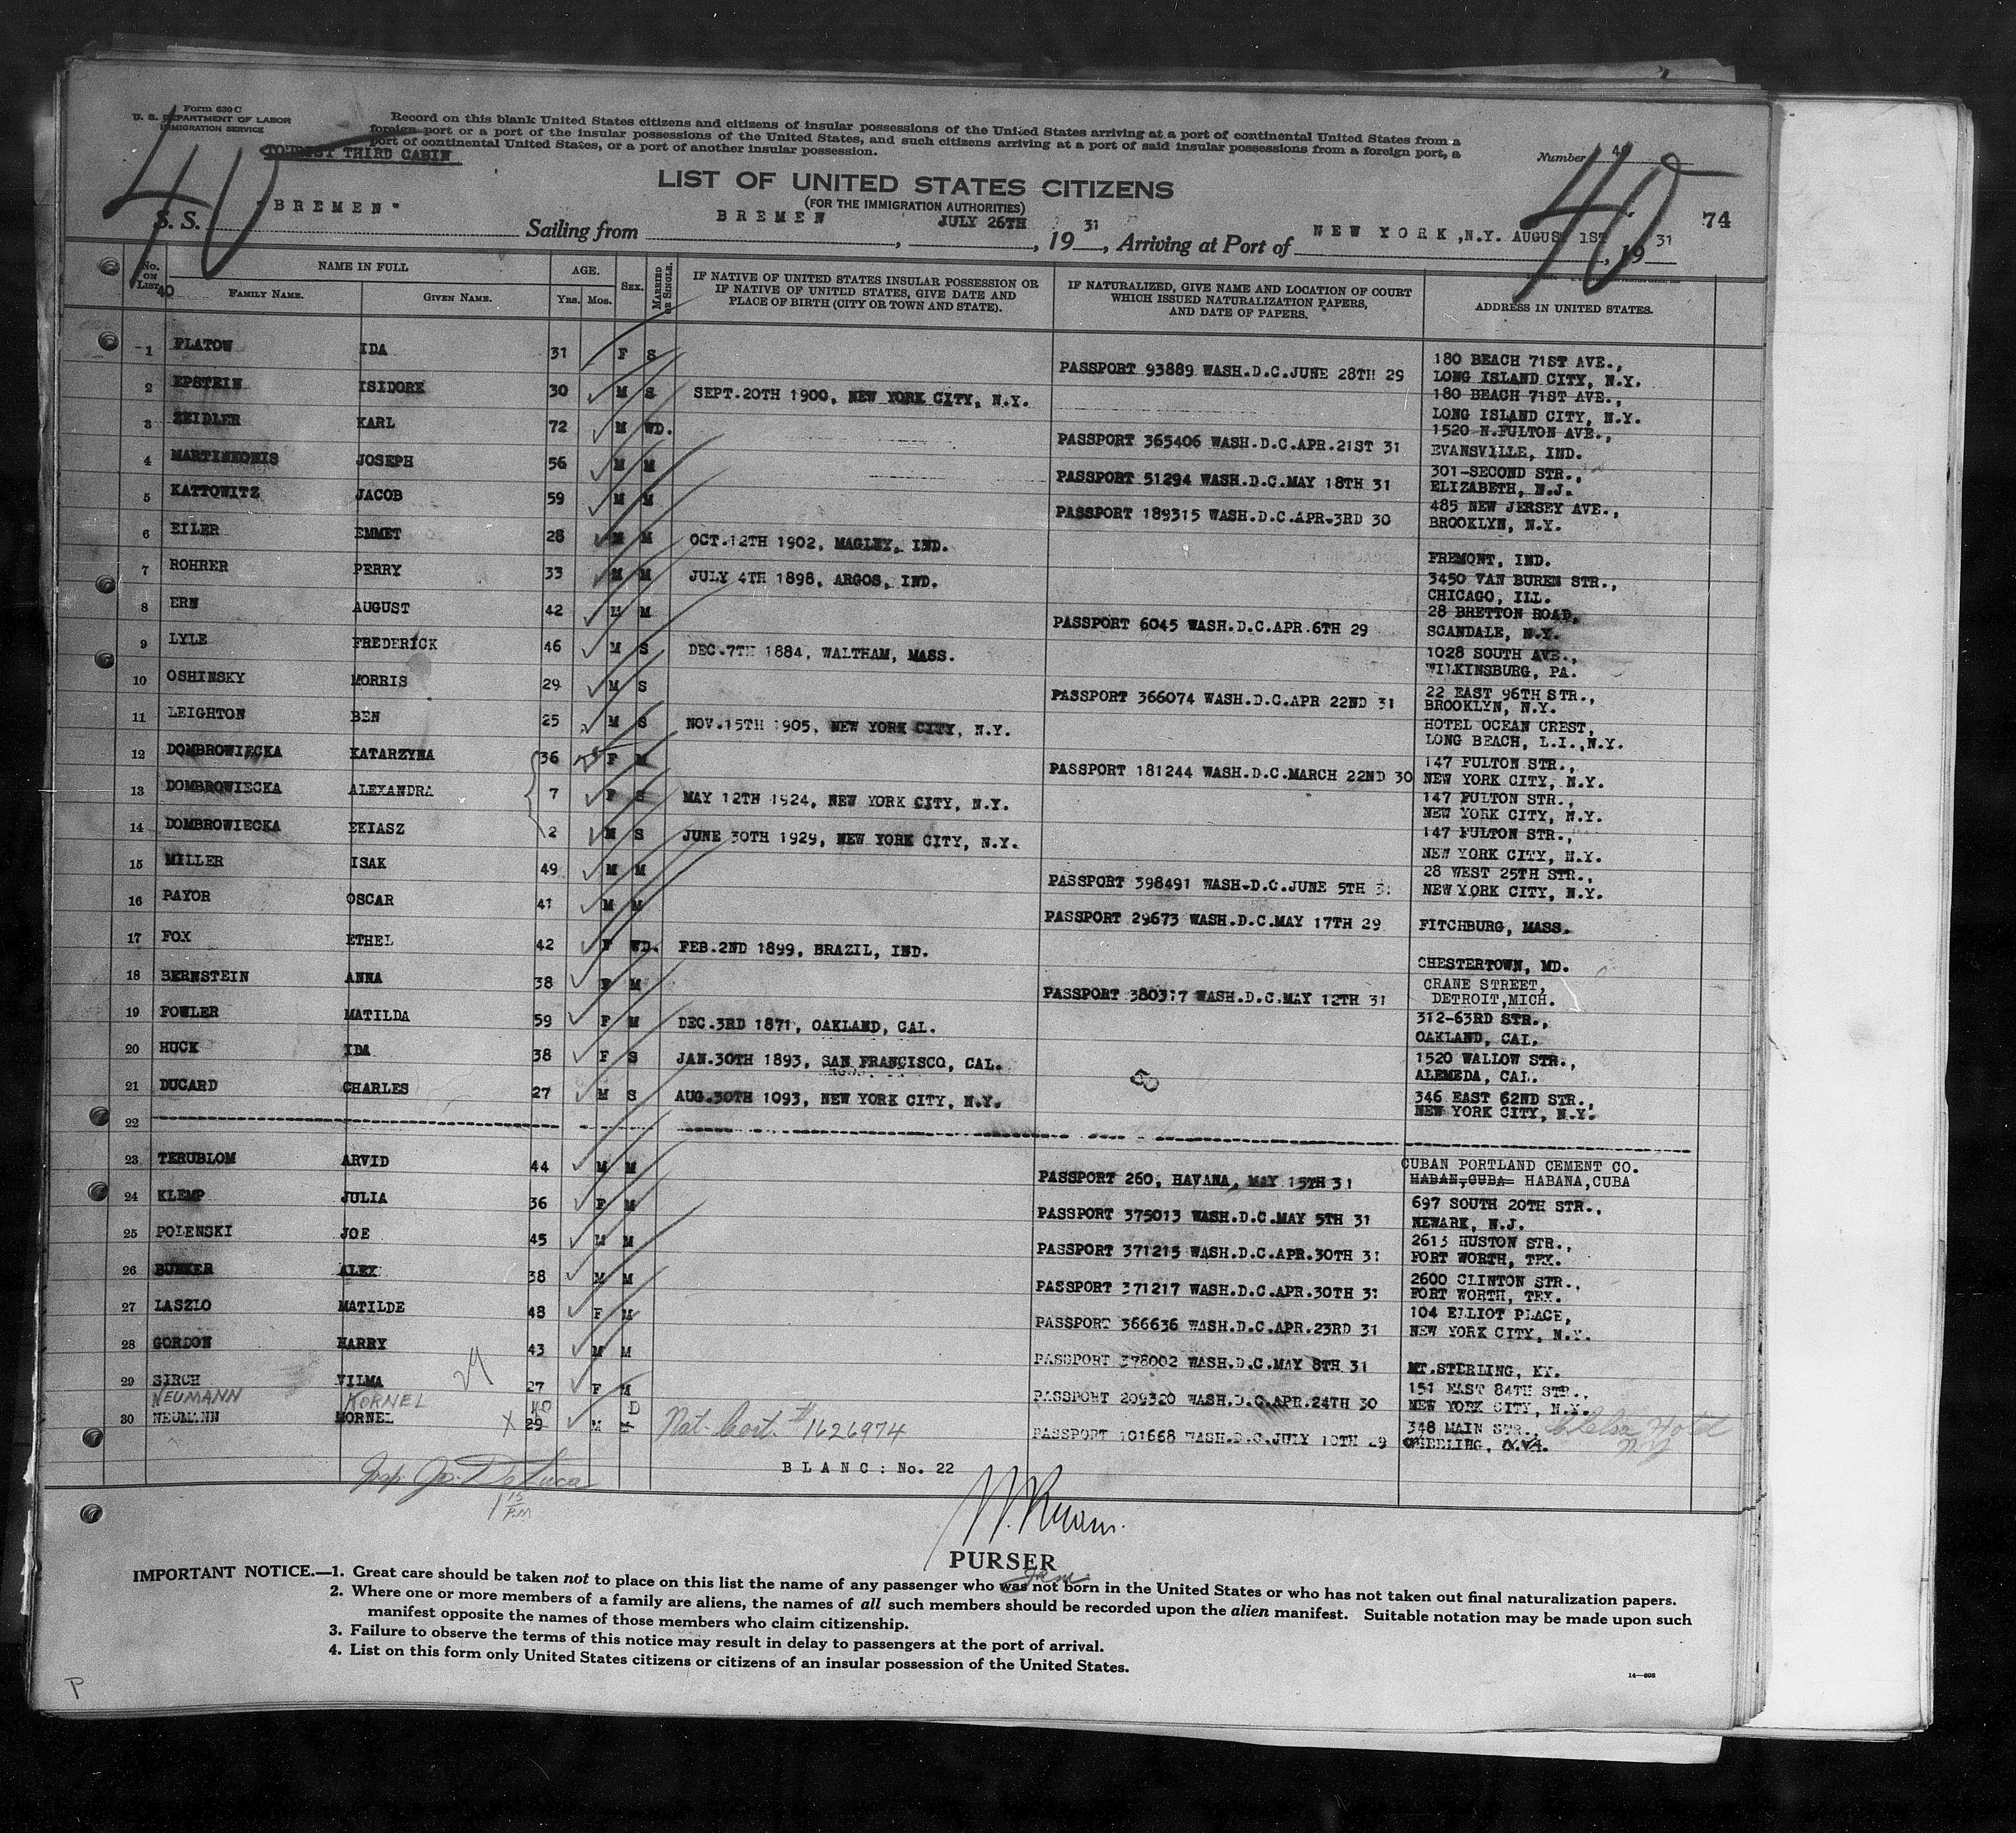 Form 630 C
U. S. DEPARTMENT OF LABOR
IMMIGRATION SERVICE
Record on this blank United States citizens and citizens of insular possessions of the United States arriving at a port of continental United States from a
foreign port or a port of the insular possessions of the United States, and such citizens arriving at a port of said insular possessions from a foreign port, a
port of continental United States, or a port of another insular possession.
TOURIST THIRD CABIN
40
40
Number 40
LIST OF UNITED STATES CITIZENS
(FOR THE IMMIGRATION AUTHORITIES)
S. S. "BREMEN" Sailing from BREMEN, JULY 26TH, 1931, Arriving at Port of NEW YORK, N.Y. AUGUST 1ST, 1931
74
No. ON LIST 40 NAME IN FULL FAMILY NAME. GIVEN NAME. AGE. Yrs. Mos. SEX. MARRIED OR SINGLE. IF NATIVE OF UNITED STATES INSULAR POSSESSION OR IF NATIVE OF UNITED STATES, GIVE DATE AND PLACE OF BIRTH (CITY OR TOWN AND STATE). IF NATURALIZED, GIVE NAME AND LOCATION OF COURT WHICH ISSUED NATURALIZATION PAPERS, AND DATE OF PAPERS. ADDRESS IN UNITED STATES.
1 PLATOW IDA 31 F S PASSPORT 93889 WASH.D.C.JUNE 28TH 29 180 BEACH 71ST AVE., LONG ISLAND CITY, N.Y.
2 EPSTEIN ISIDORE 30 M S SEPT.20TH 1900, NEW YORK CITY, N.Y. 180 BEACH 71ST AVE., LONG ISLAND CITY, N.Y.
3 ZEIDLER KARL 72 M WD. PASSPORT 365406 WASH.D.C.APR.21ST 31 1520 N.FULTON AVE., EVANSVILLE, IND.
4 MARTINKONIS JOSEPH 56 M M PASSPORT 51294 WASH.D.C.MAY 18TH 31 301-SECOND STR., ELIZABETH, N.J.
5 KATTOWITZ JACOB 59 M M PASSPORT 189315 WASH.D.C.APR.3RD 30 485 NEW JERSEY AVE., BROOKLYN, N.Y.
6 EILER EMMET 28 M M OCT.12TH 1902, MAGLEY, IND. FREMONT, IND.
7 ROHRER PERRY 33 M M JULY 4TH 1898, ARGOS, IND. 3450 VAN BUREN STR., CHICAGO, ILL.
8 ERN AUGUST 42 M M PASSPORT 6045 WASH.D.C.APR.6TH 29 28 BRETTON ROAD, SCANDALE, N.Y.
9 LYLE FREDERICK 46 M S DEC.7TH 1884, WALTHAM, MASS. 1028 SOUTH AVE., WILKINSBURG, PA.
10 OSHINSKY MORRIS 29 M S PASSPORT 366074 WASH.D.C.APR 22ND 31 22 EAST 96TH STR., BROOKLYN, N.Y.
11 LEIGHTON BEN 25 M S NOV.15TH 1905, NEW YORK CITY, N.Y. HOTEL OCEAN CREST, LONG BEACH, L.I.,N.Y.
12 DOMBROWIECKA KATARZYNA 36 F M PASSPORT 181244 WASH.D.C.MARCH 22ND 30 147 FULTON STR., NEW YORK CITY, N.Y.
13 DOMBROWIECKA ALEXANDRA 7 F S MAY 12TH 1924, NEW YORK CITY, N.Y. 147 FULTON STR., NEW YORK CITY, N.Y.
14 DOMBROWIECKA EKIASZ 2 M S JUNE 30TH 1929, NEW YORK CITY, N.Y. 147 FULTON STR., NEW YORK CITY, N.Y.
15 MILLER ISAK 49 M M PASSPORT 398491 WASH.D.C.JUNE 5TH 31 28 WEST 25TH STR., NEW YORK CITY, N.Y.
16 PAYOR OSCAR 41 M M PASSPORT 29673 WASH.D.C.MAY 17TH 29 FITCHBURG, MASS.
17 FOX ETHEL 42 F WD. FEB.2ND 1899, BRAZIL, IND. CHESTERTOWN, MD.
18 BERNSTEIN ANNA 38 F M PASSPORT 380317 WASH.D.C.MAY 12TH 31 CRANE STREET, DETROIT,MICH.
19 FOWLER MATILDA 59 F M DEC.3RD 1871, OAKLAND, CAL. 312-63RD STR., OAKLAND, CAL.
20 HUCK IDA 38 F S JAN.30TH 1893, SAN FRANCISCO, CAL. 1520 WALLOW STR., ALEMEDA, CAL.
21 DUCARD CHARLES 27 M S AUG.30TH 1093, NEW YORK CITY, N.Y. 346 EAST 62ND STR., NEW YORK CITY, N.Y.
22
23 TERUBLOM ARVID 44 M M PASSPORT 260, HAVANA, MAY 15TH 31 CUBAN PORTLAND CEMENT CO. HABAN,CUBA HABANA,CUBA
24 KLEMP JULIA 36 F M PASSPORT 375013 WASH.D.C.MAY 5TH 31 697 SOUTH 20TH STR., NEWARK, N.J.
25 POLENSKI JOE 45 M M PASSPORT 371215 WASH.D.C.APR.30TH 31 2613 HUSTON STR., FORT WORTH, TEX.
26 BUNKER ALEX 38 M M PASSPORT 371217 WASH.D.C.APR.30TH 31 2600 CLINTON STR., FORT WORTH, TEX.
27 LASZLO MATILDE 48 F M PASSPORT 366636 WASH.D.C.APR.23RD 31 104 ELLIOT PLACE, NEW YORK CITY, N.Y.
28 GORDON HARRY 43 M M PASSPORT 378002 WASH.D.C.MAY 8TH 31 MT.STERLING, KY.
29 SIRCH VILMA 27 F M PASSPORT 209320 WASH.D.C.APR.24TH 30 151 EAST 84TH STR., NEW YORK CITY, N.Y.
NEUMANN KORNEL 40 D
30 NEUMANN MORNEL X 29 M M Nat. Cert. # 1626974 PASSPORT 101668 WASH.D.C.JULY 10TH 29 348 MAIN STR., WHEELING, W.VA. Hotel N.Y
BLANC: No. 22
Insp. Jos. De Luca
1 15 P.M
PURSER
IMPORTANT NOTICE.—1. Great care should be taken not to place on this list the name of any passenger who was not born in the United States or who has not taken out final naturalization papers.
2. Where one or more members of a family are aliens, the names of all such members should be recorded upon the alien manifest. Suitable notation may be made upon such
manifest opposite the names of those members who claim citizenship.
3. Failure to observe the terms of this notice may result in delay to passengers at the port of arrival.
4. List on this form only United States citizens or citizens of an insular possession of the United States.
14—808
P